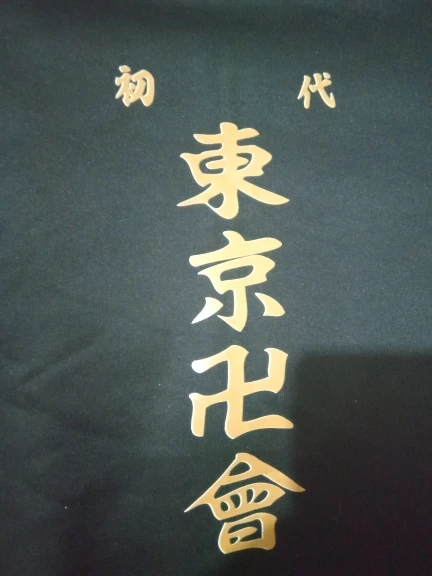 初代
東京卍會